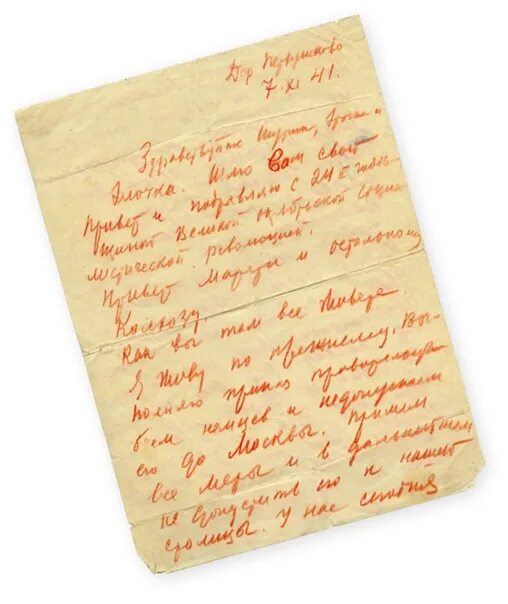 Дер Перхушково
7.XI 41.
Здравствуйте Шурочка, и
Элочка. Шлю Вам свой
привет и поздравляю с 24й годов-
щиной Великой Октябрьской Социа-
листической Революцией.
Привет Марете и остальному
Колхозу.
Как вы там все живете
Я живу по прежнему, Вы-
полняю приказ
бьем немцев и недопускаем
его до Москвы. Примем
все меры и в дальнейшем
не допустить его к нашей
столицы. У нас сегодня